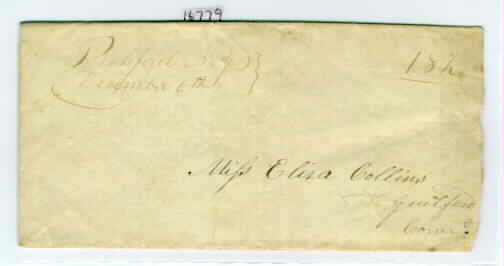 16779
Pittsford N.Y.
December 6th
18¾
Miss Eliza Collins
Guilford
Conn.